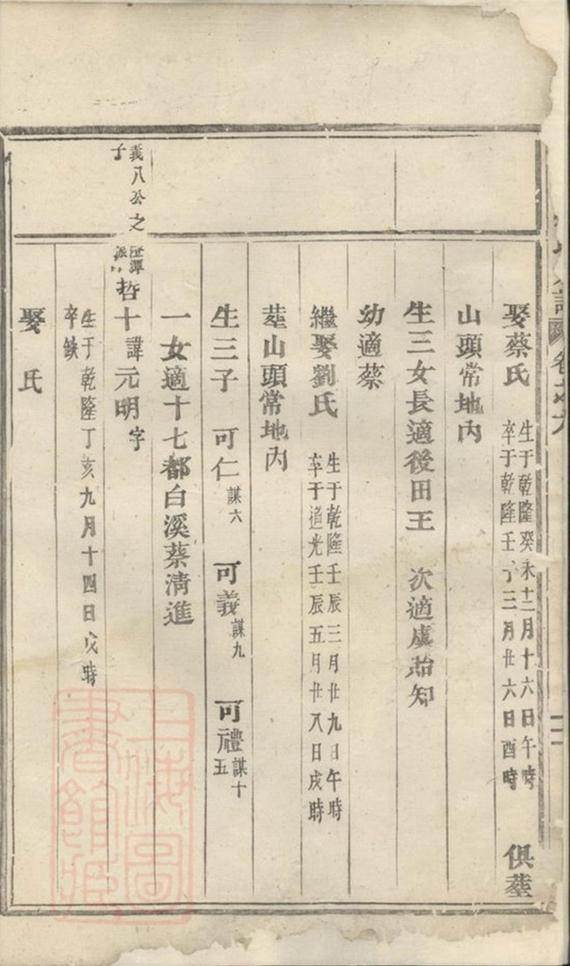 娶蔡氏 生于乾隆癸未十二月十六日午時 卒于乾隆壬子三月廿六日酉時 俱塟
山頭常地內
生三女長適後田王 次適虞知
幼適蔡
繼娶劉氏 生于乾隆壬辰三月廿九日午時 卒于道光壬辰五月廿八日戌時
塟山頭常地內
生三子 可仁謀六 可義謀九 可禮謀十五
一女適十七都白溪蔡清進
義八公之子 哲十諱元明字
生于乾隆丁亥九月十四日戌時 卒缺
娶氏
上海圖書館藏